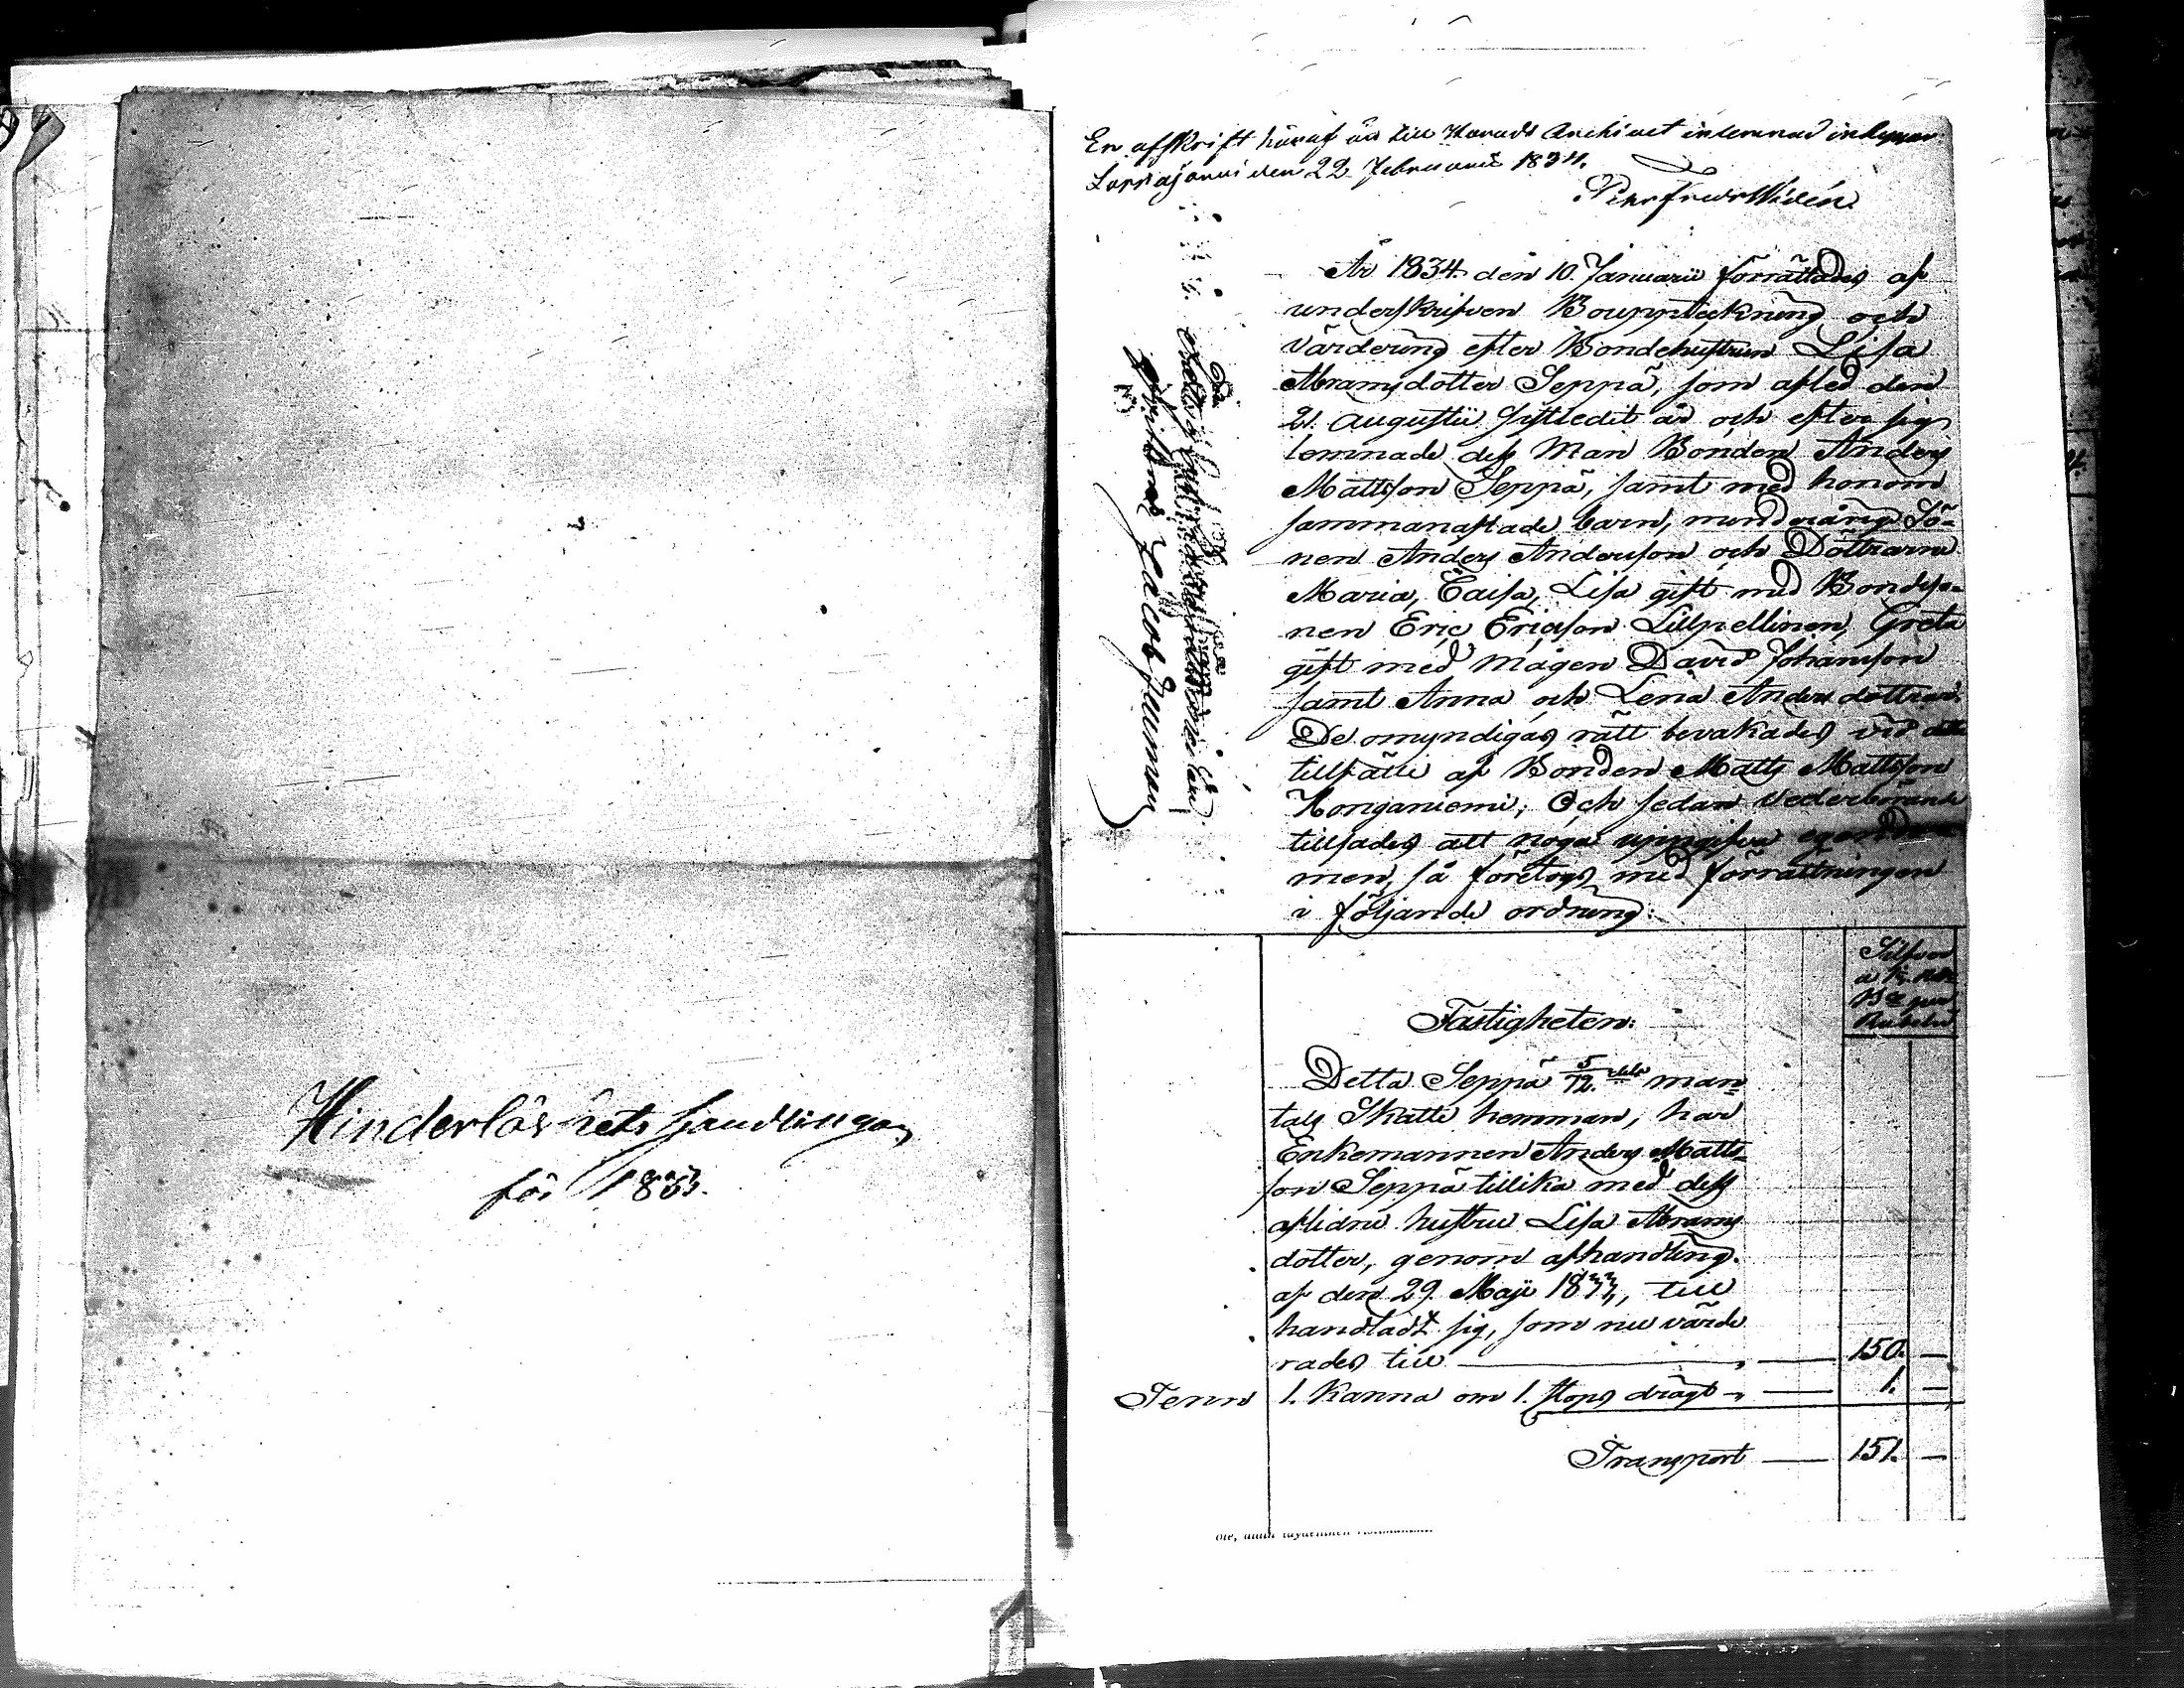 Hinderlöshets handlingar
för 1833.
En afskrift häraf är till Harads Archivet inlemnad intygar
Lappajärvi den 22 Februarii 1834.
Pehr Fredr Widén
År 1834 den 10 Januarii förrättades af
underskrifven Bouppteckning och
värdering efter Bondehustrun Lisa
Abramsdotter Seppä, som afled den
21. Augustii sistledit år och efter sig
lemnade dess Man Bonden Anders
Mattsson Seppä, samt med honom
sammanaflade barn, minderårige Sö-
nen Anders Andersson och Döttrarne
Maria, Caisa, Lisa gift med Bondeso-
nen Eric Ericsson Lillpellinen, Greta
gift med Mågen David Johansson
samt Anna och Lena Andersdöttrar.
De omyndigas rätt bevakades vid detta
tillfälle af Bonden Matts Mattsson
Honganiemi; Och sedan Vederbörande
tillsades att noga uppgifva egendom-
men, så företogs med förrättningen
i följande ordning:
Silfver
Rubeln
Fastigheten:
Detta Seppä 5/12 dels man-
tals Skatte hemman, har
Enkemannen Anders Matts-
son Seppä tillika med dess
aflidne hustru Lisa Abrams
dotter, genom afhandling
af den 29 Maji 1833, till
handladt sig, som nu värde
rades till — 150. —
Tenn 1. Kanna om 1. stops drägt — 1. —
Transport — 151. —
Jacob